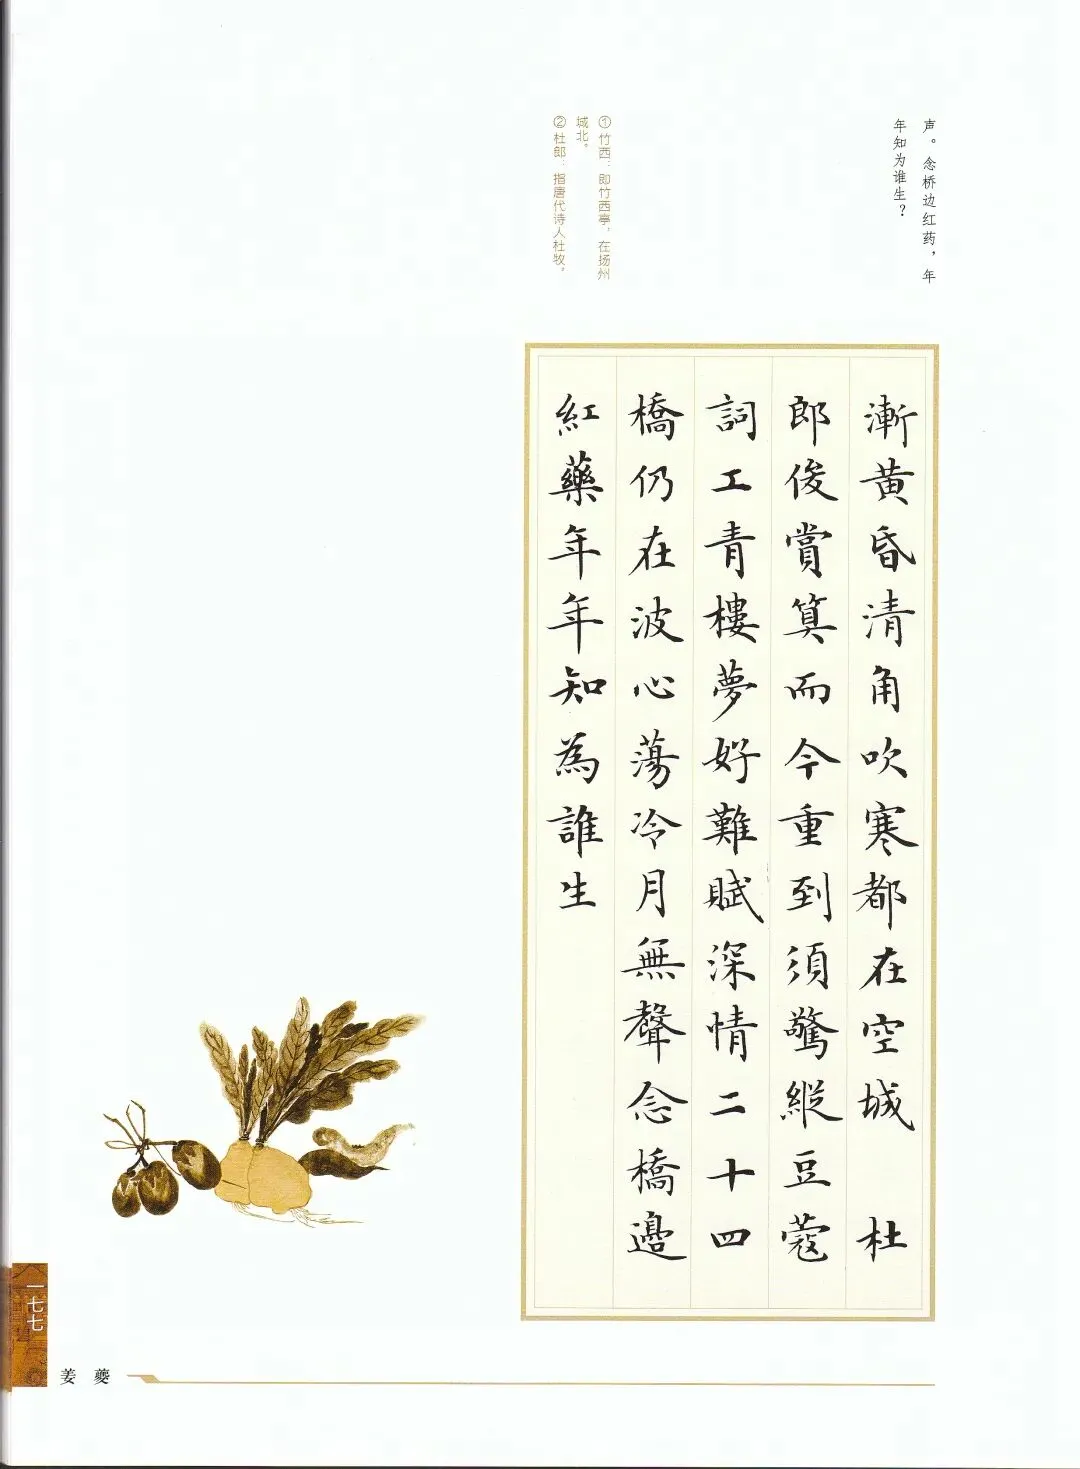 声。念桥边红药，年
年知为谁生？
①竹西：即竹西亭，在扬州
城北。
②杜郎：指唐代诗人杜牧。
漸黃昏清角吹寒都在空城 杜
郎俊賞算而今重到須驚縱豆蔻
詞工青樓夢好難賦深情二十四
橋仍在波心蕩冷月無聲念橋邊
紅藥年年知為誰生
一七七
姜夔